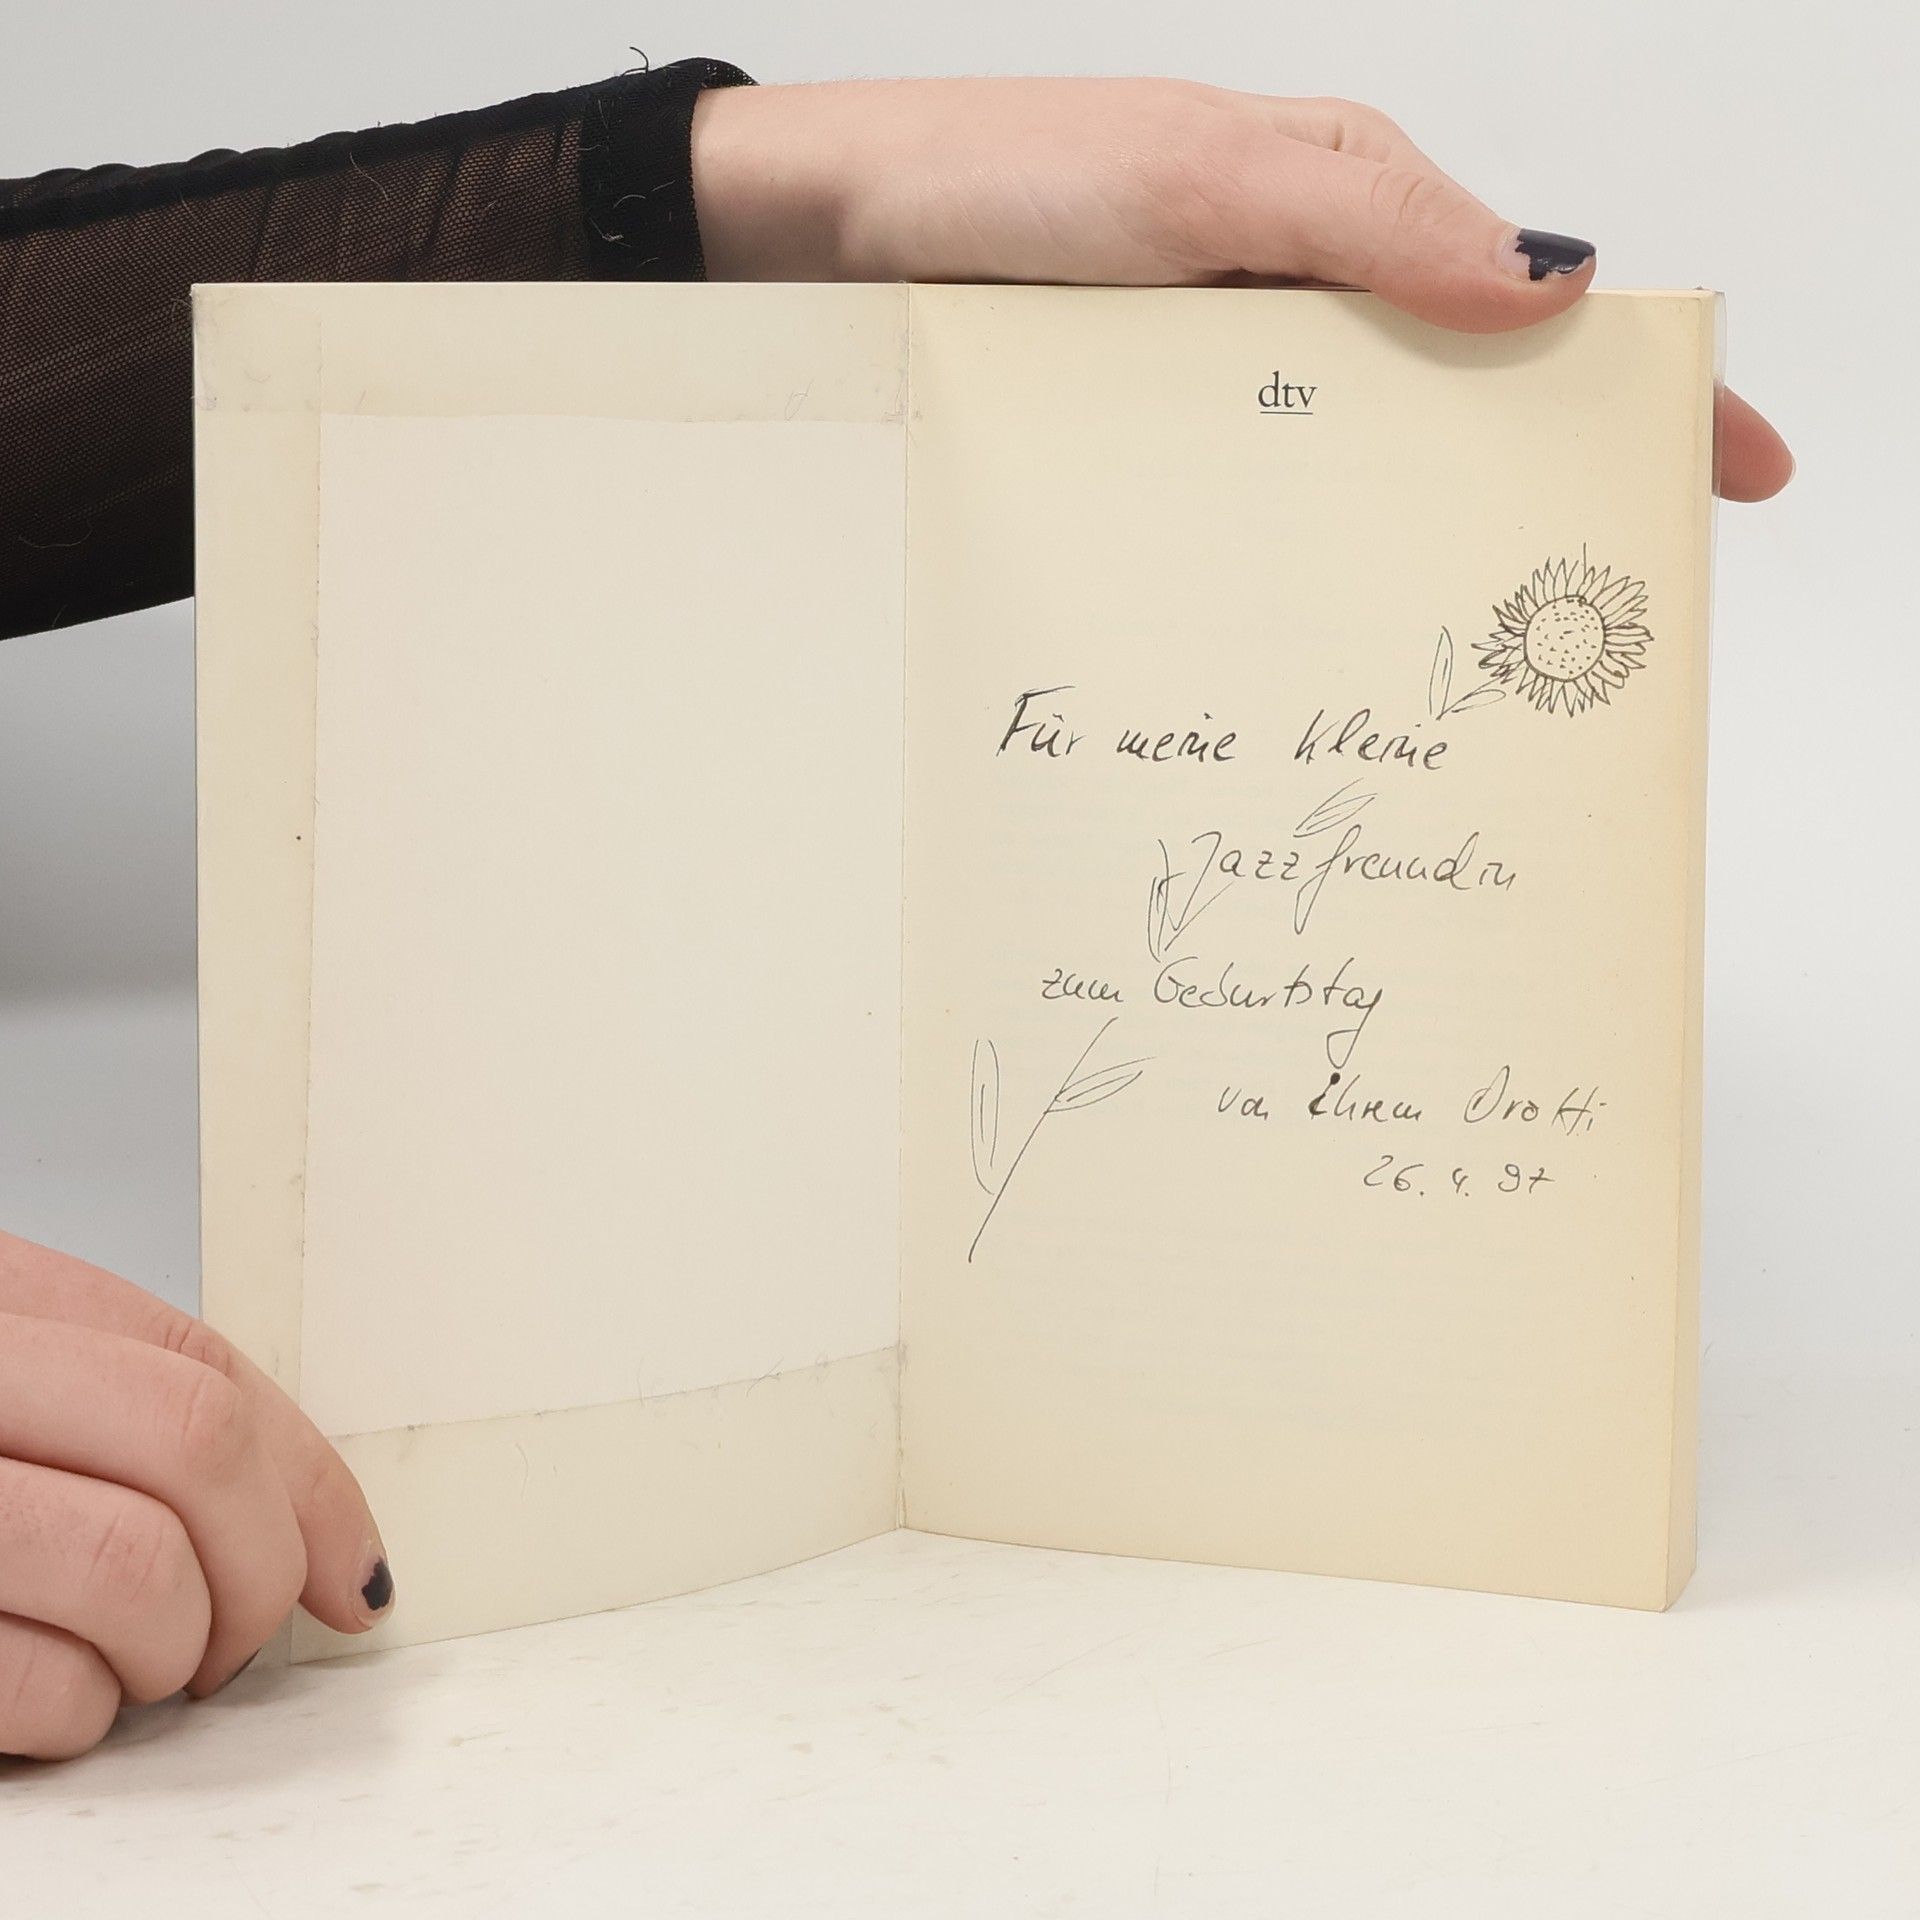 dtv
Für meine kleine
Jazzfreundin
zum Geburtstag
von ihrem Drotti
26. 4. 97